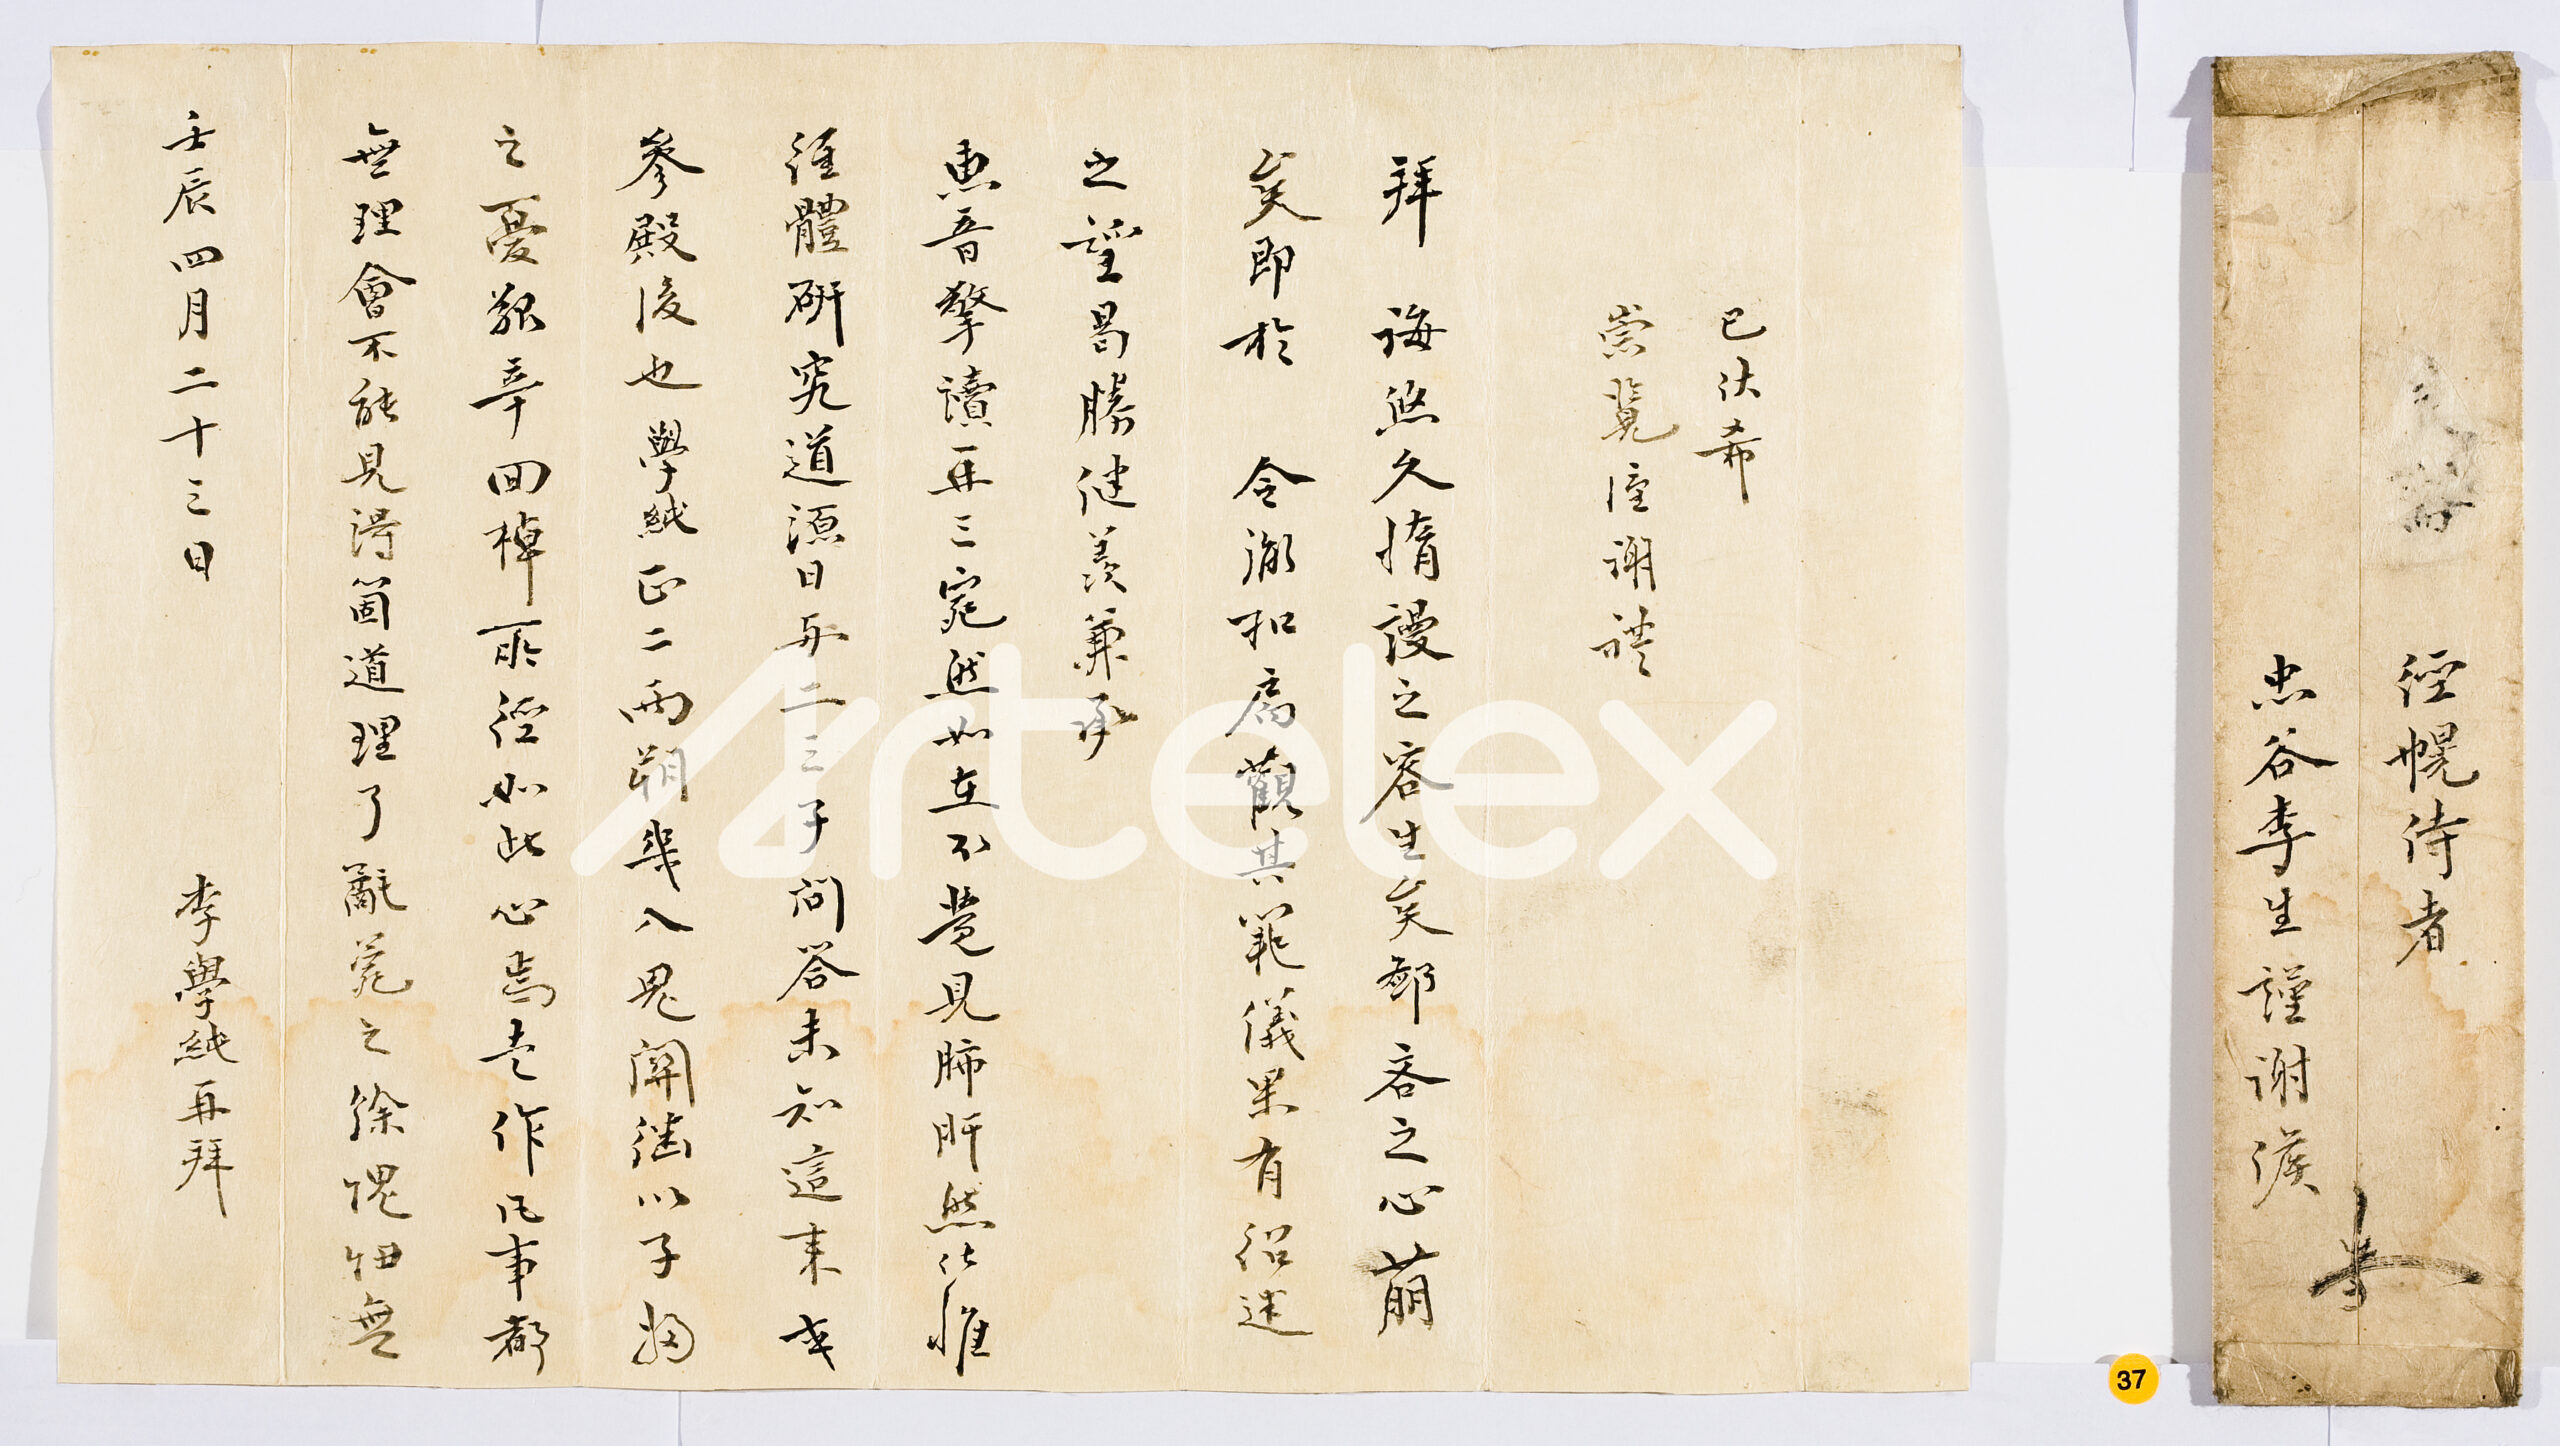 經幌侍者
忠谷李生謹謝候
已伏希
崇覽 謹謝禮
拜 誨悠久惰謾之容生矣鄙吝之心萌
矣卽於 令胤扣扃觀其範儀果有紹述
之望曷勝健羨第承
惠音擎讀再三宛然如在不覺見肺肝然以惟
經體硏究道源日與二三子問答未知這來或
參殿後也學純正二兩朔幾入鬼關繼以子婦
之憂艱辛回棹所經如此心焉志作凡事都
無理會不能見得箇道理了亂荒之餘愧忸無
壬辰四月二十三日 李學純再拜
37
Artelex